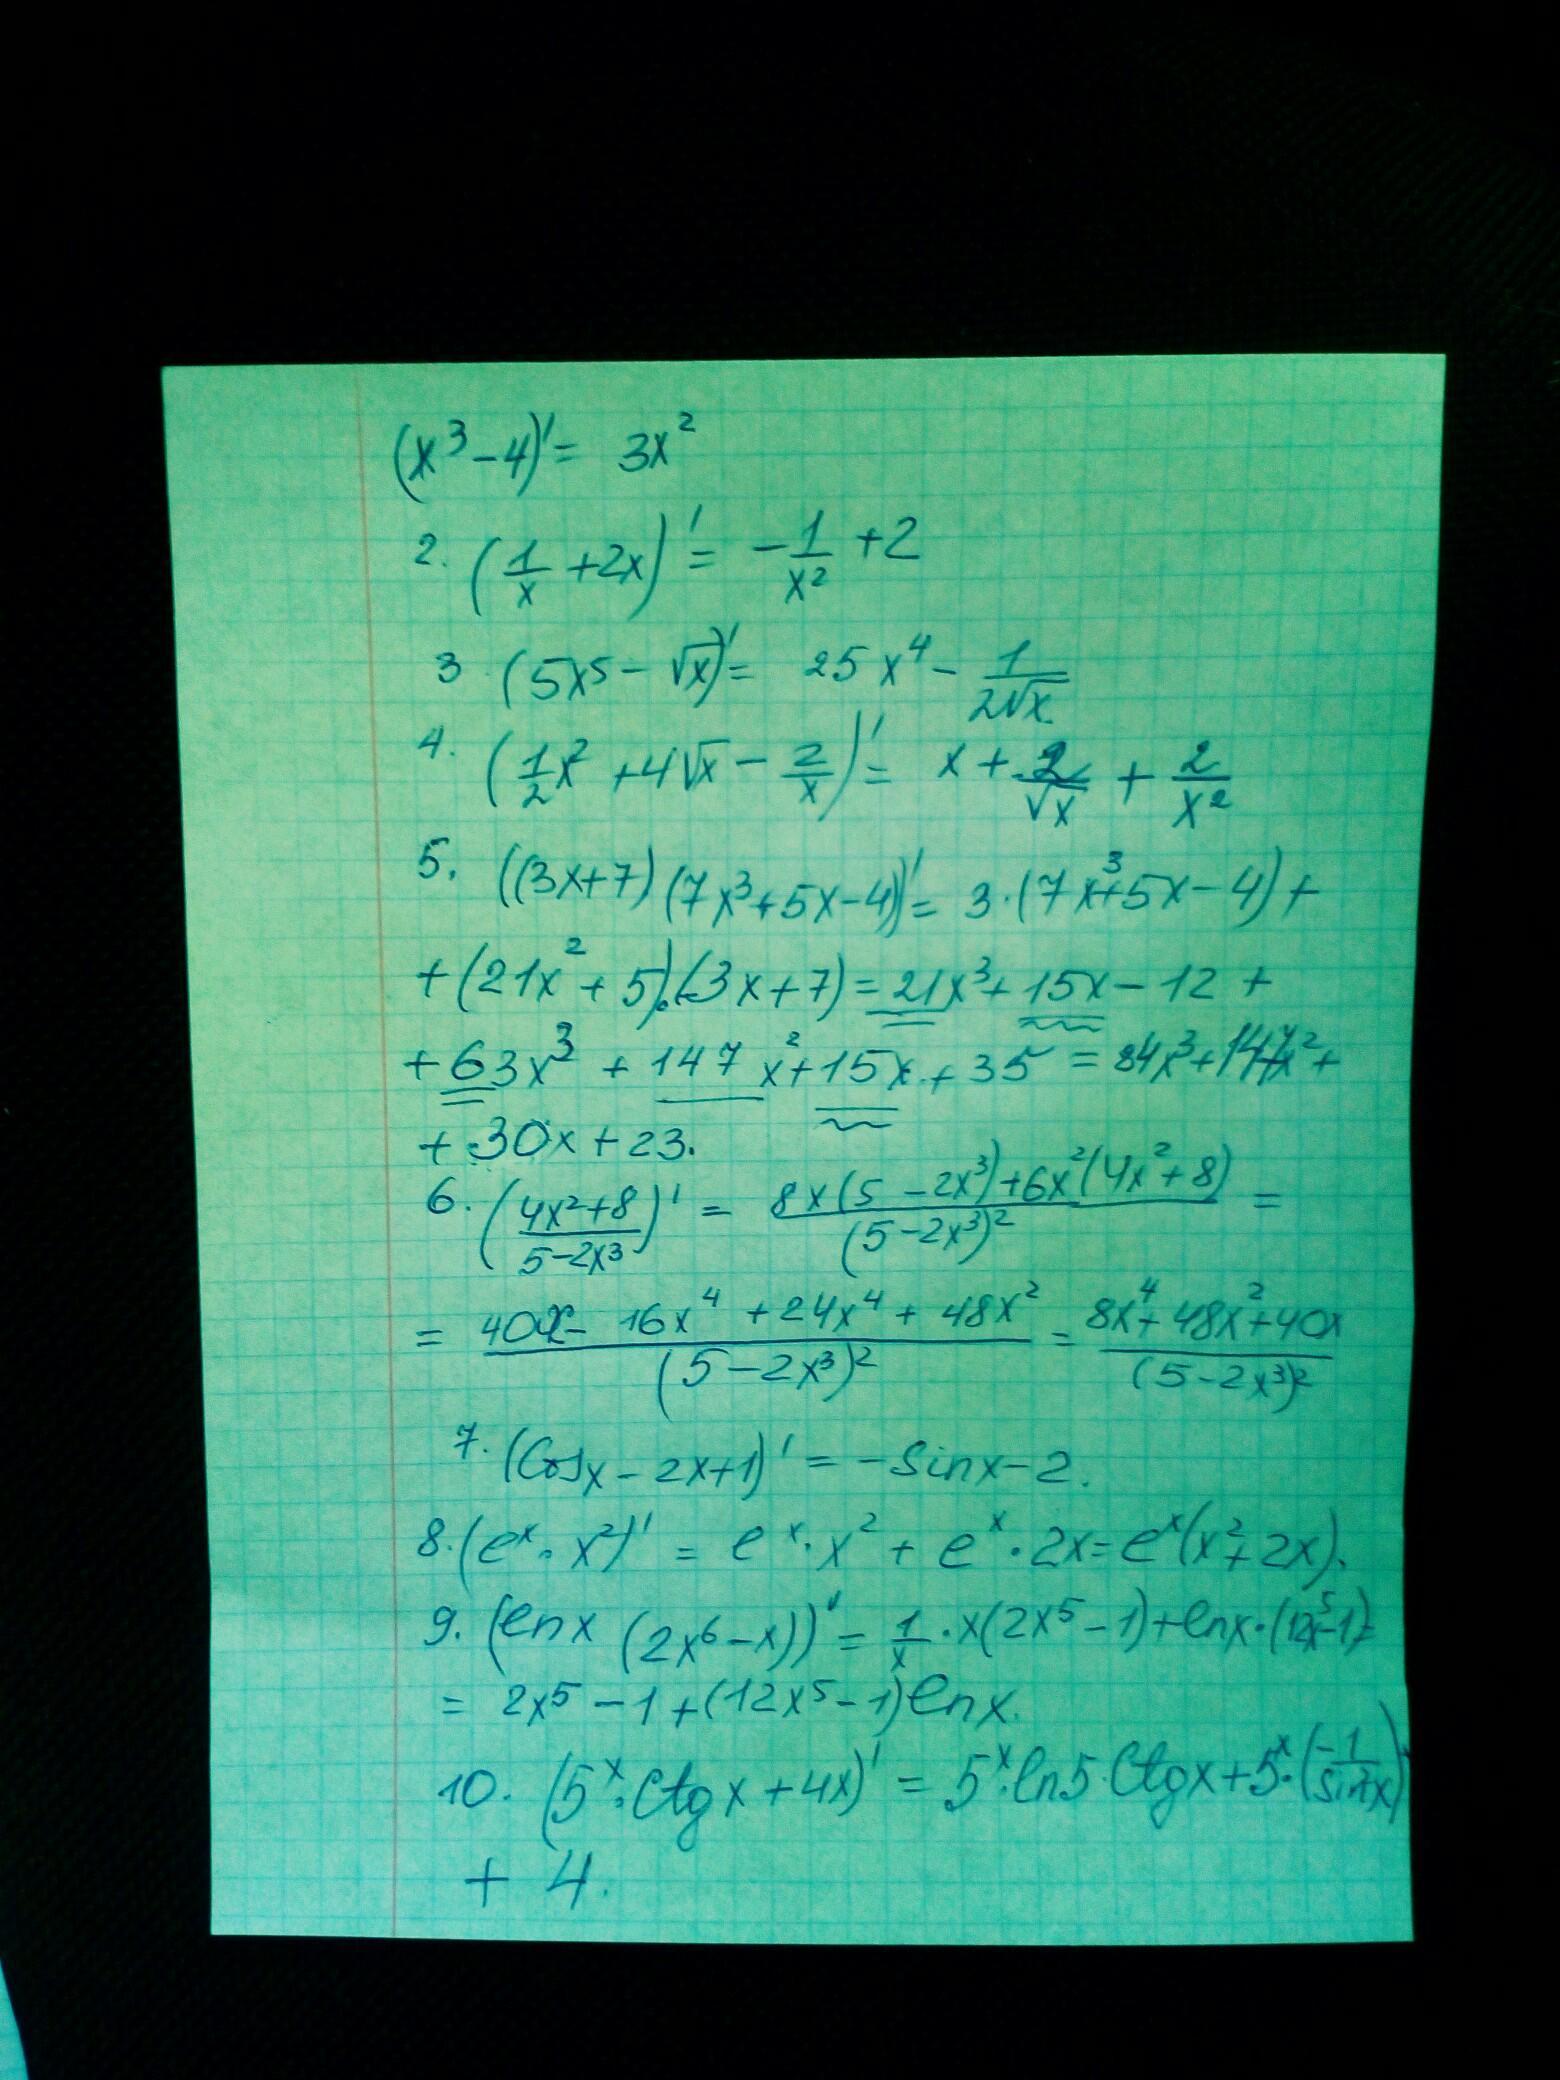 (x³-4)' = 3x²
2. (1/x +2x)' = -1/x² +2
3 (5x⁵ - √x)' = 25x⁴ - 1/(2√x)
4. (1/2 x² +4√x - 2/x)' = x + 2/√x + 2/x²
5. ((3x+7)(7x³+5x-4))' = 3·(7x³+5x-4)+
+(21x²+5)·(3x+7) = 21x³+15x-12+
+63x³+147x²+15x+35 = 84x³+147x²+
+30x+23.
6. ((4x²+8)/(5-2x³))' = (8x(5-2x³)+6x²(4x²+8))/(5-2x³)² =
= (40x-16x⁴+24x⁴+48x²)/(5-2x³)² = (8x⁴+48x²+40x)/(5-2x³)²
7. (Cosx-2x+1)' = -Sinx-2.
8. (eˣ·x²)' = eˣ·x²+eˣ·2x = eˣ(x²+2x).
9. (lnx (2x⁶-x))' = 1/x·x(2x⁵-1)+lnx·(12x⁵-1)=
= 2x⁵-1+(12x⁵-1)lnx.
10. (5ˣ·Ctgx+4x)' = 5ˣ·ln5·Ctgx+5ˣ·(-1/sin²x)
+ 4.